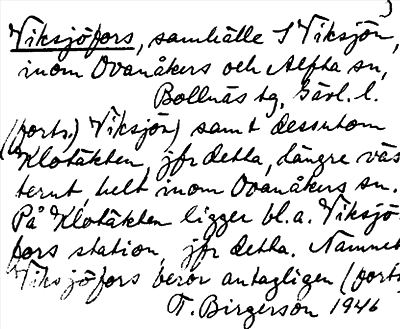 Viksjöfors, samhälle S Viksjön,
inom Ovanåkers och Alfta sn,
Bollnäs tg, Gävl. l.
(forts.) Viksjön) samt dessutom
Klotäkten, jfr detta, längre väs
terut, helt inom Ovanåkers sn.
På Klotäkten ligger bl. a. Viksjö-
fors station, jfr detta. Namnet
Viksjöfors beror antagligen (forts
T. Birgerson 1946